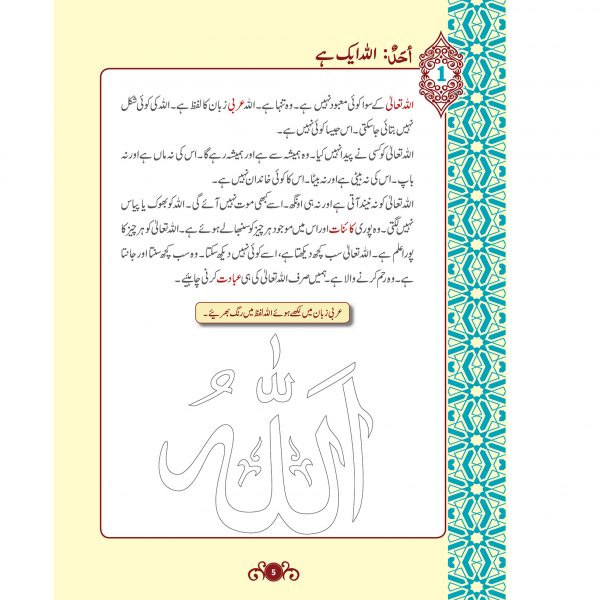 1
أَحَدٌ: اللہ ایک ہے
اللہ تعالیٰ کے سوا کوئی معبود نہیں ہے۔ وہ تنہا ہے۔ اللہ عربی زبان کا لفظ ہے۔ اللہ کی کوئی شکل
نہیں بتائی جاسکتی۔ اس جیسا کوئی نہیں ہے۔
اللہ تعالیٰ کو کسی نے پیدا نہیں کیا۔ وہ ہمیشہ سے ہے اور ہمیشہ رہے گا۔ اس کی نہ ماں ہے اور نہ
باپ۔ اس کی نہ بیٹی ہے اور نہ بیٹا۔ اس کا کوئی خاندان نہیں ہے۔
اللہ تعالیٰ کو نہ نیند آتی ہے اور نہ ہی اونگھ۔ اسے کبھی موت نہیں آئے گی۔ اللہ کو بھوک یا پیاس
نہیں لگتی۔ وہ پوری کائنات اور اس میں موجود ہر چیز کو سنبھالے ہوئے ہے۔ اللہ تعالیٰ کو ہر چیز کا
پورا علم ہے۔ اللہ تعالیٰ سب کچھ دیکھتا ہے، اسے کوئی نہیں دیکھ سکتا۔ وہ سب کچھ سنتا اور جانتا
ہے۔ وہ رحم کرنے والا ہے۔ ہمیں صرف اللہ تعالیٰ کی ہی عبادت کرنی چاہیے۔
عربی زبان میں لکھے ہوئے اللہ لفظ میں رنگ بھریئے۔
اَللّٰهُ
5